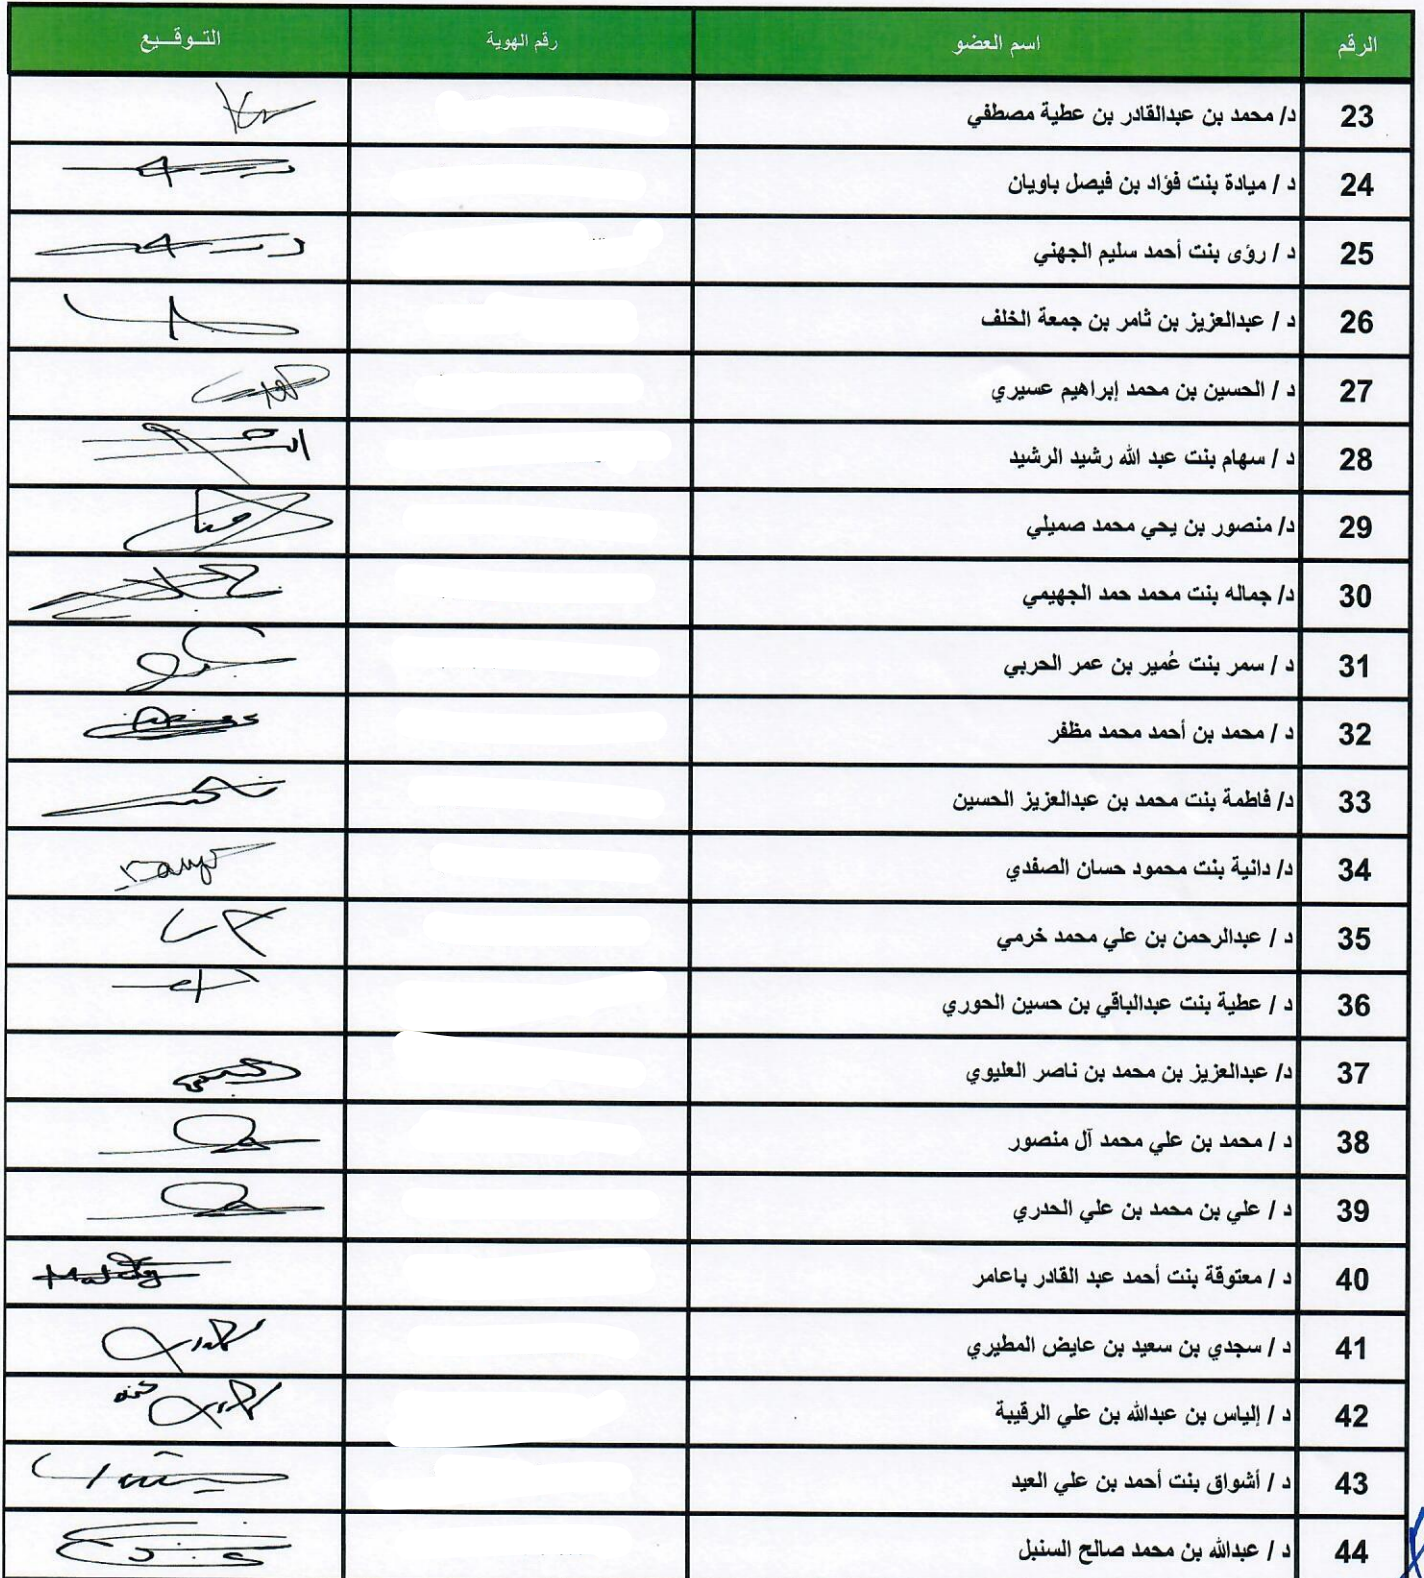 الرقم اسم العضو رقم الهوية التـوقـيع
23 د/ محمد بن عبدالقادر بن عطية مصطفي
24 د / ميادة بنت فؤاد بن فيصل باويان
25 د / رؤى بنت أحمد سليم الجهني
26 د / عبدالعزيز بن ثامر بن جمعة الخلف
27 د / الحسين بن محمد إبراهيم عسيري
28 د / سهام بنت عبد الله رشيد الرشيد
29 د/ منصور بن يحي محمد صميلي
30 د/ جماله بنت محمد حمد الجهيمي
31 د / سمر بنت عُمير بن عمر الحربي
32 د / محمد بن أحمد محمد مظفر
33 د/ فاطمة بنت محمد بن عبدالعزيز الحسين
34 د/ دانية بنت محمود حسان الصفدي
35 د / عبدالرحمن بن علي محمد خرمي
36 د / عطية بنت عبدالباقي بن حسين الحوري
37 د/ عبدالعزيز بن محمد بن ناصر العليوي
38 د / محمد بن علي محمد آل منصور
39 د / علي بن محمد بن علي الحدري
40 د / معتوقة بنت أحمد عبد القادر باعامر
41 د / سجدي بن سعيد بن عايض المطيري
42 د / إلياس بن عبدالله بن علي الرقيبة
43 د / أشواق بنت أحمد بن علي العبد
44 د / عبدالله بن محمد صالح السنبل